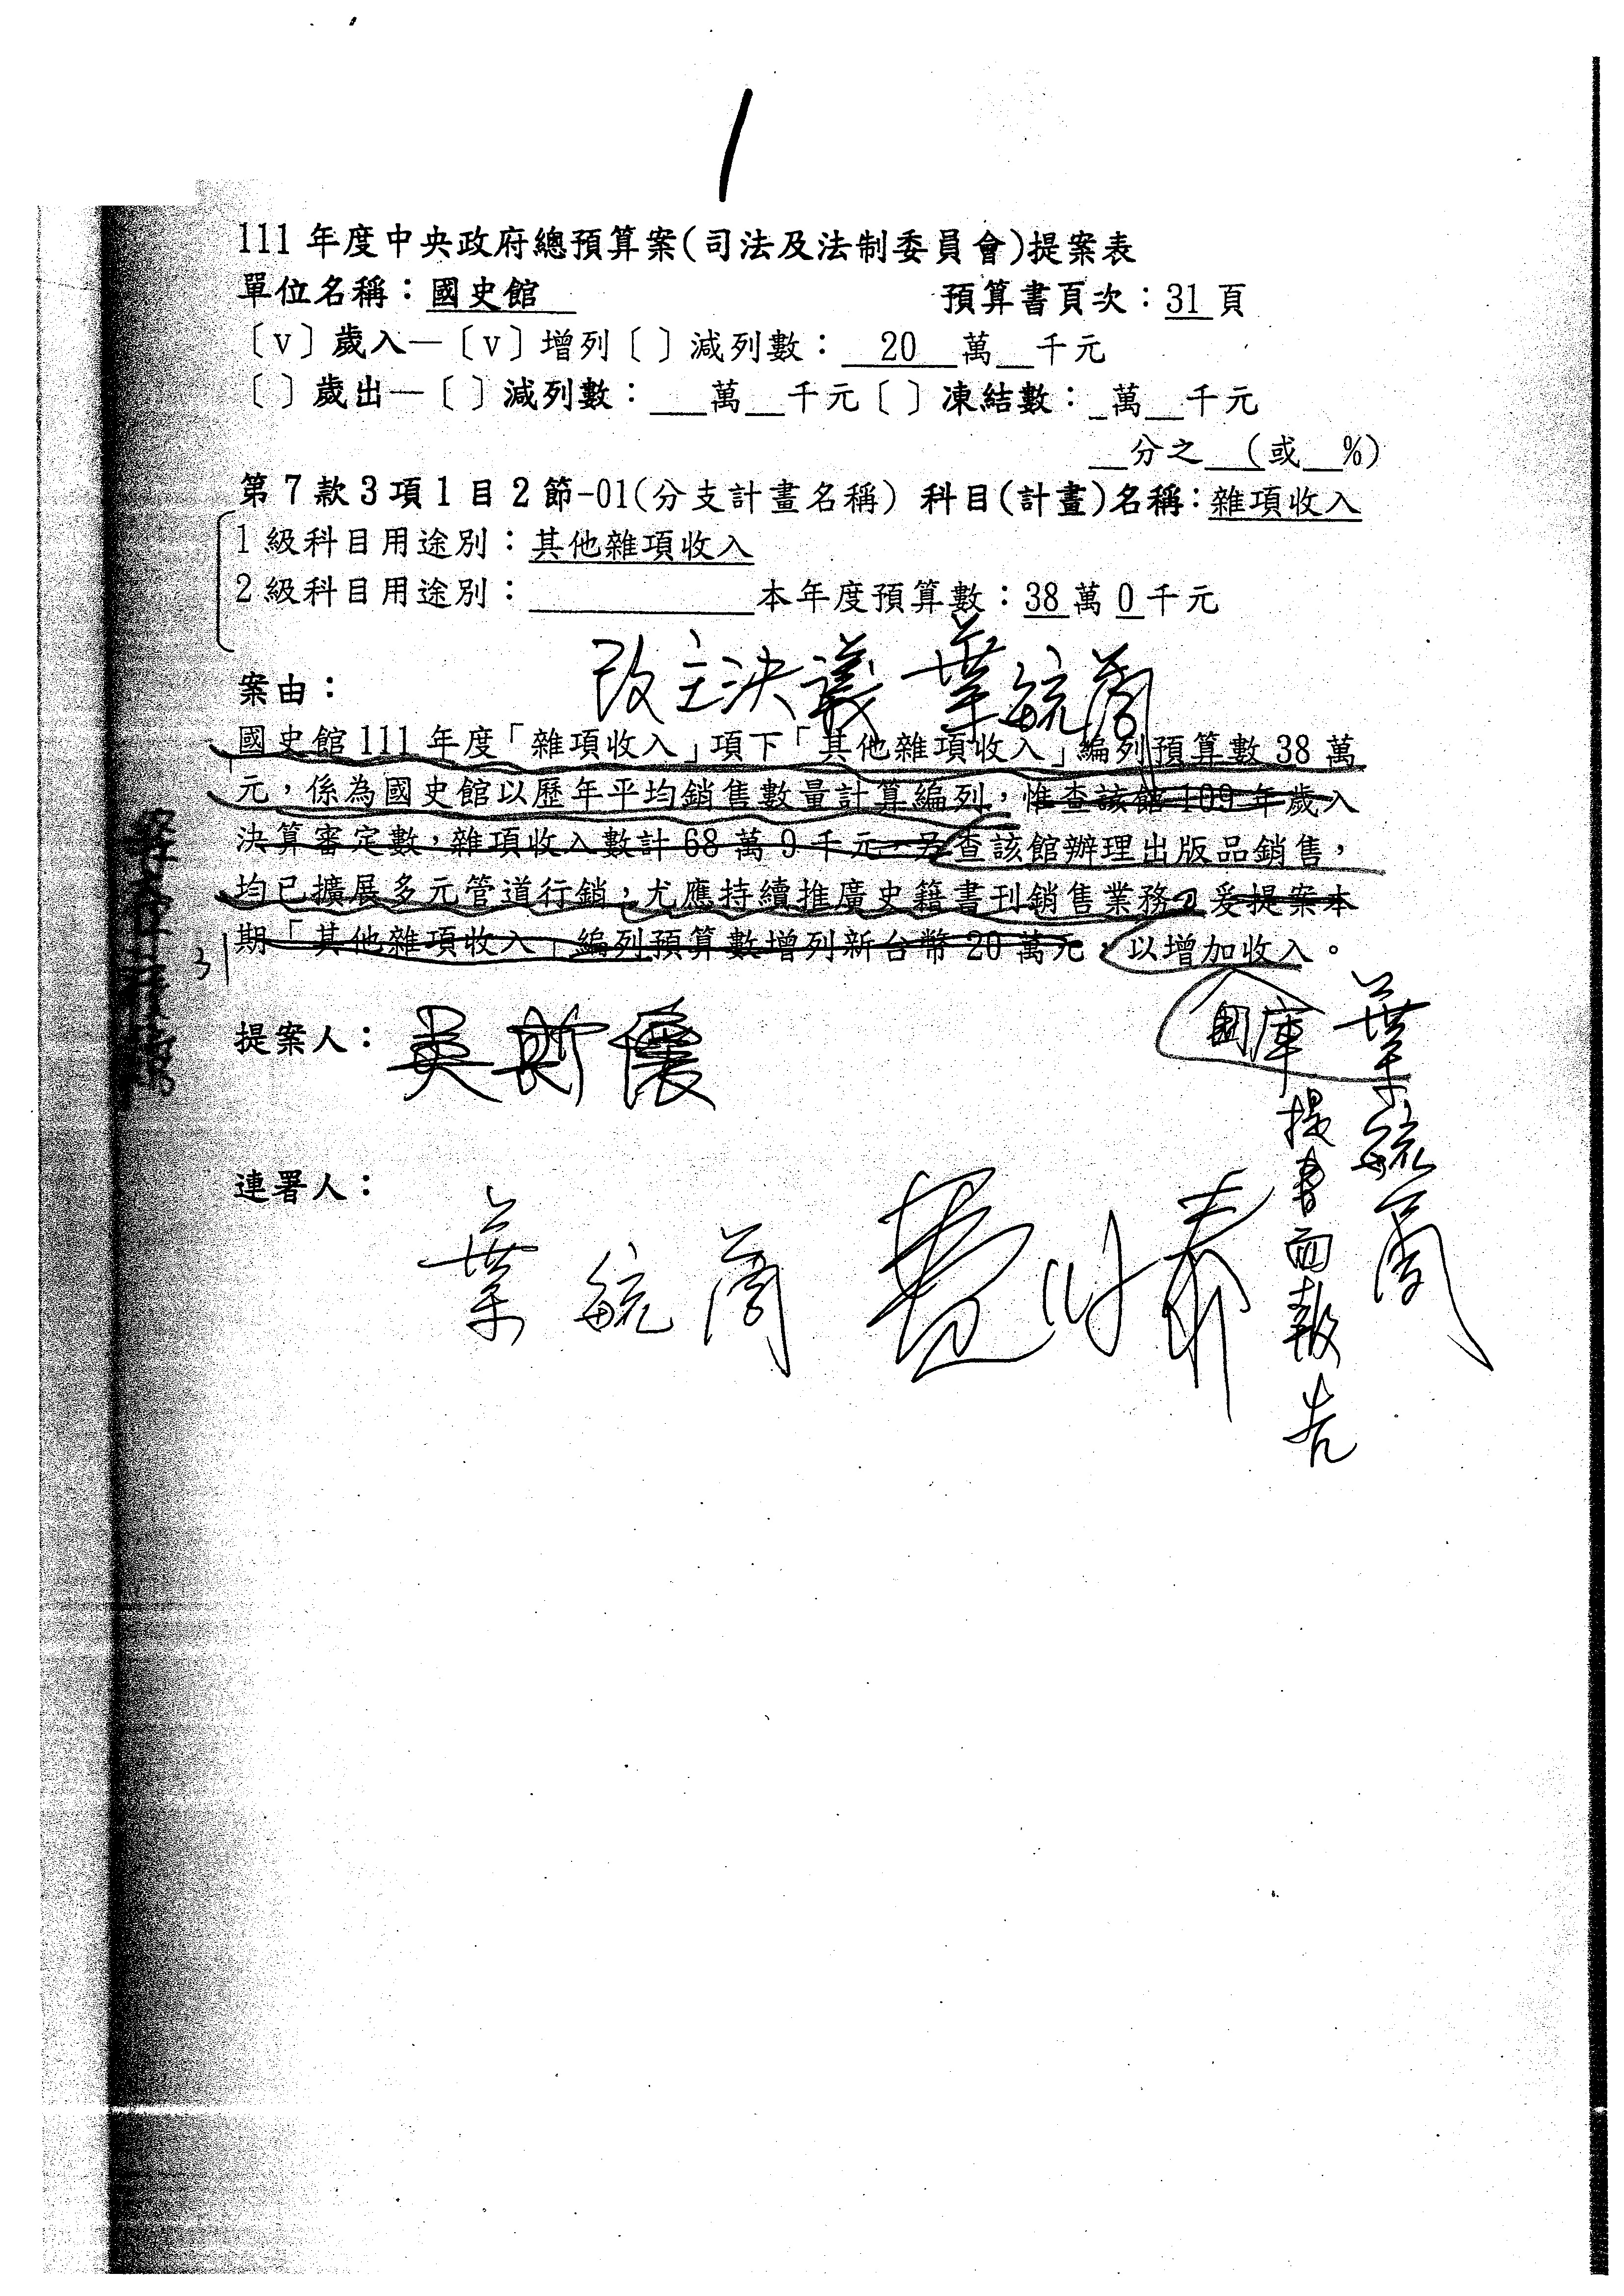 1
111年度中央政府總預算案(司法及法制委員會)提案表
單位名稱：國史館 預算書頁次：31頁
〔v〕歲入—〔v〕增列〔 〕減列數：__20__萬__千元
〔 〕歲出—〔 〕減列數：___萬__千元〔 〕凍結數：_萬__千元
__分之__(或__%)
第7款3項1目2節-01(分支計畫名稱) 科目(計畫)名稱：雜項收入
1級科目用途別：其他雜項收入
2級科目用途別：____________本年度預算數：38萬0千元
改主決議 葉毓蘭
案由：
國史館111年度「雜項收入」項下「其他雜項收入」編列預算數38萬
元，係為國史館以歷年平均銷售數量計算編列，惟查該館109年歲入
決算審定數，雜項收入數計68萬9千元。另查該館辦理出版品銷售，
均已擴展多元管道行銷，尤應持續推廣史籍書刊銷售業務。爰提案本
期「其他雜項收入」編列預算數增列新台幣20萬元，以增加收入。
國庫 葉毓蘭
提書面報告
提案人：吳斯懷
連署人：
葉毓蘭 費鴻泰